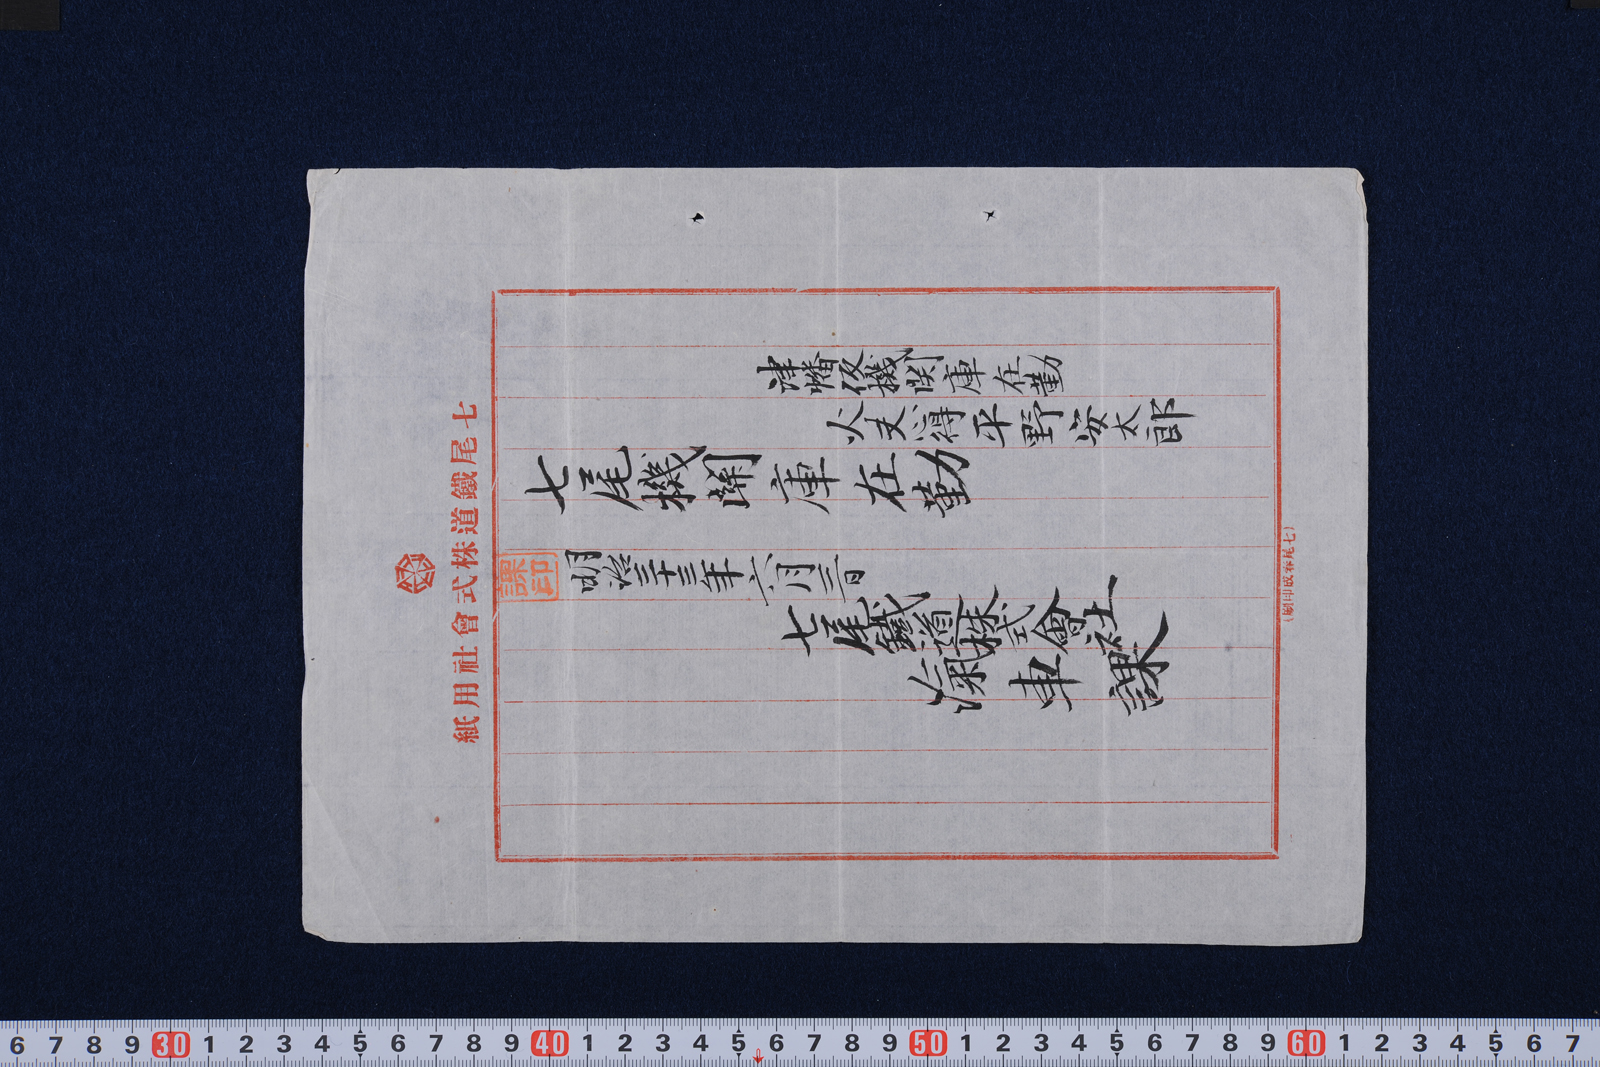 津幡仮機関庫在勤
火夫得平野安太郎
七尾機關庫在勤
明治三十三年六月三日
七尾鐵道株式會社
滊車課
課印
七尾鐵道株式會社用紙
(刷印成春尾七)
6 7 8 9 30 1 2 3 4 5 6 7 8 9 40 1 2 3 4 5 6 7 8 9 50 1 2 3 4 5 6 7 8 9 60 1 2 3 4 5 6 7